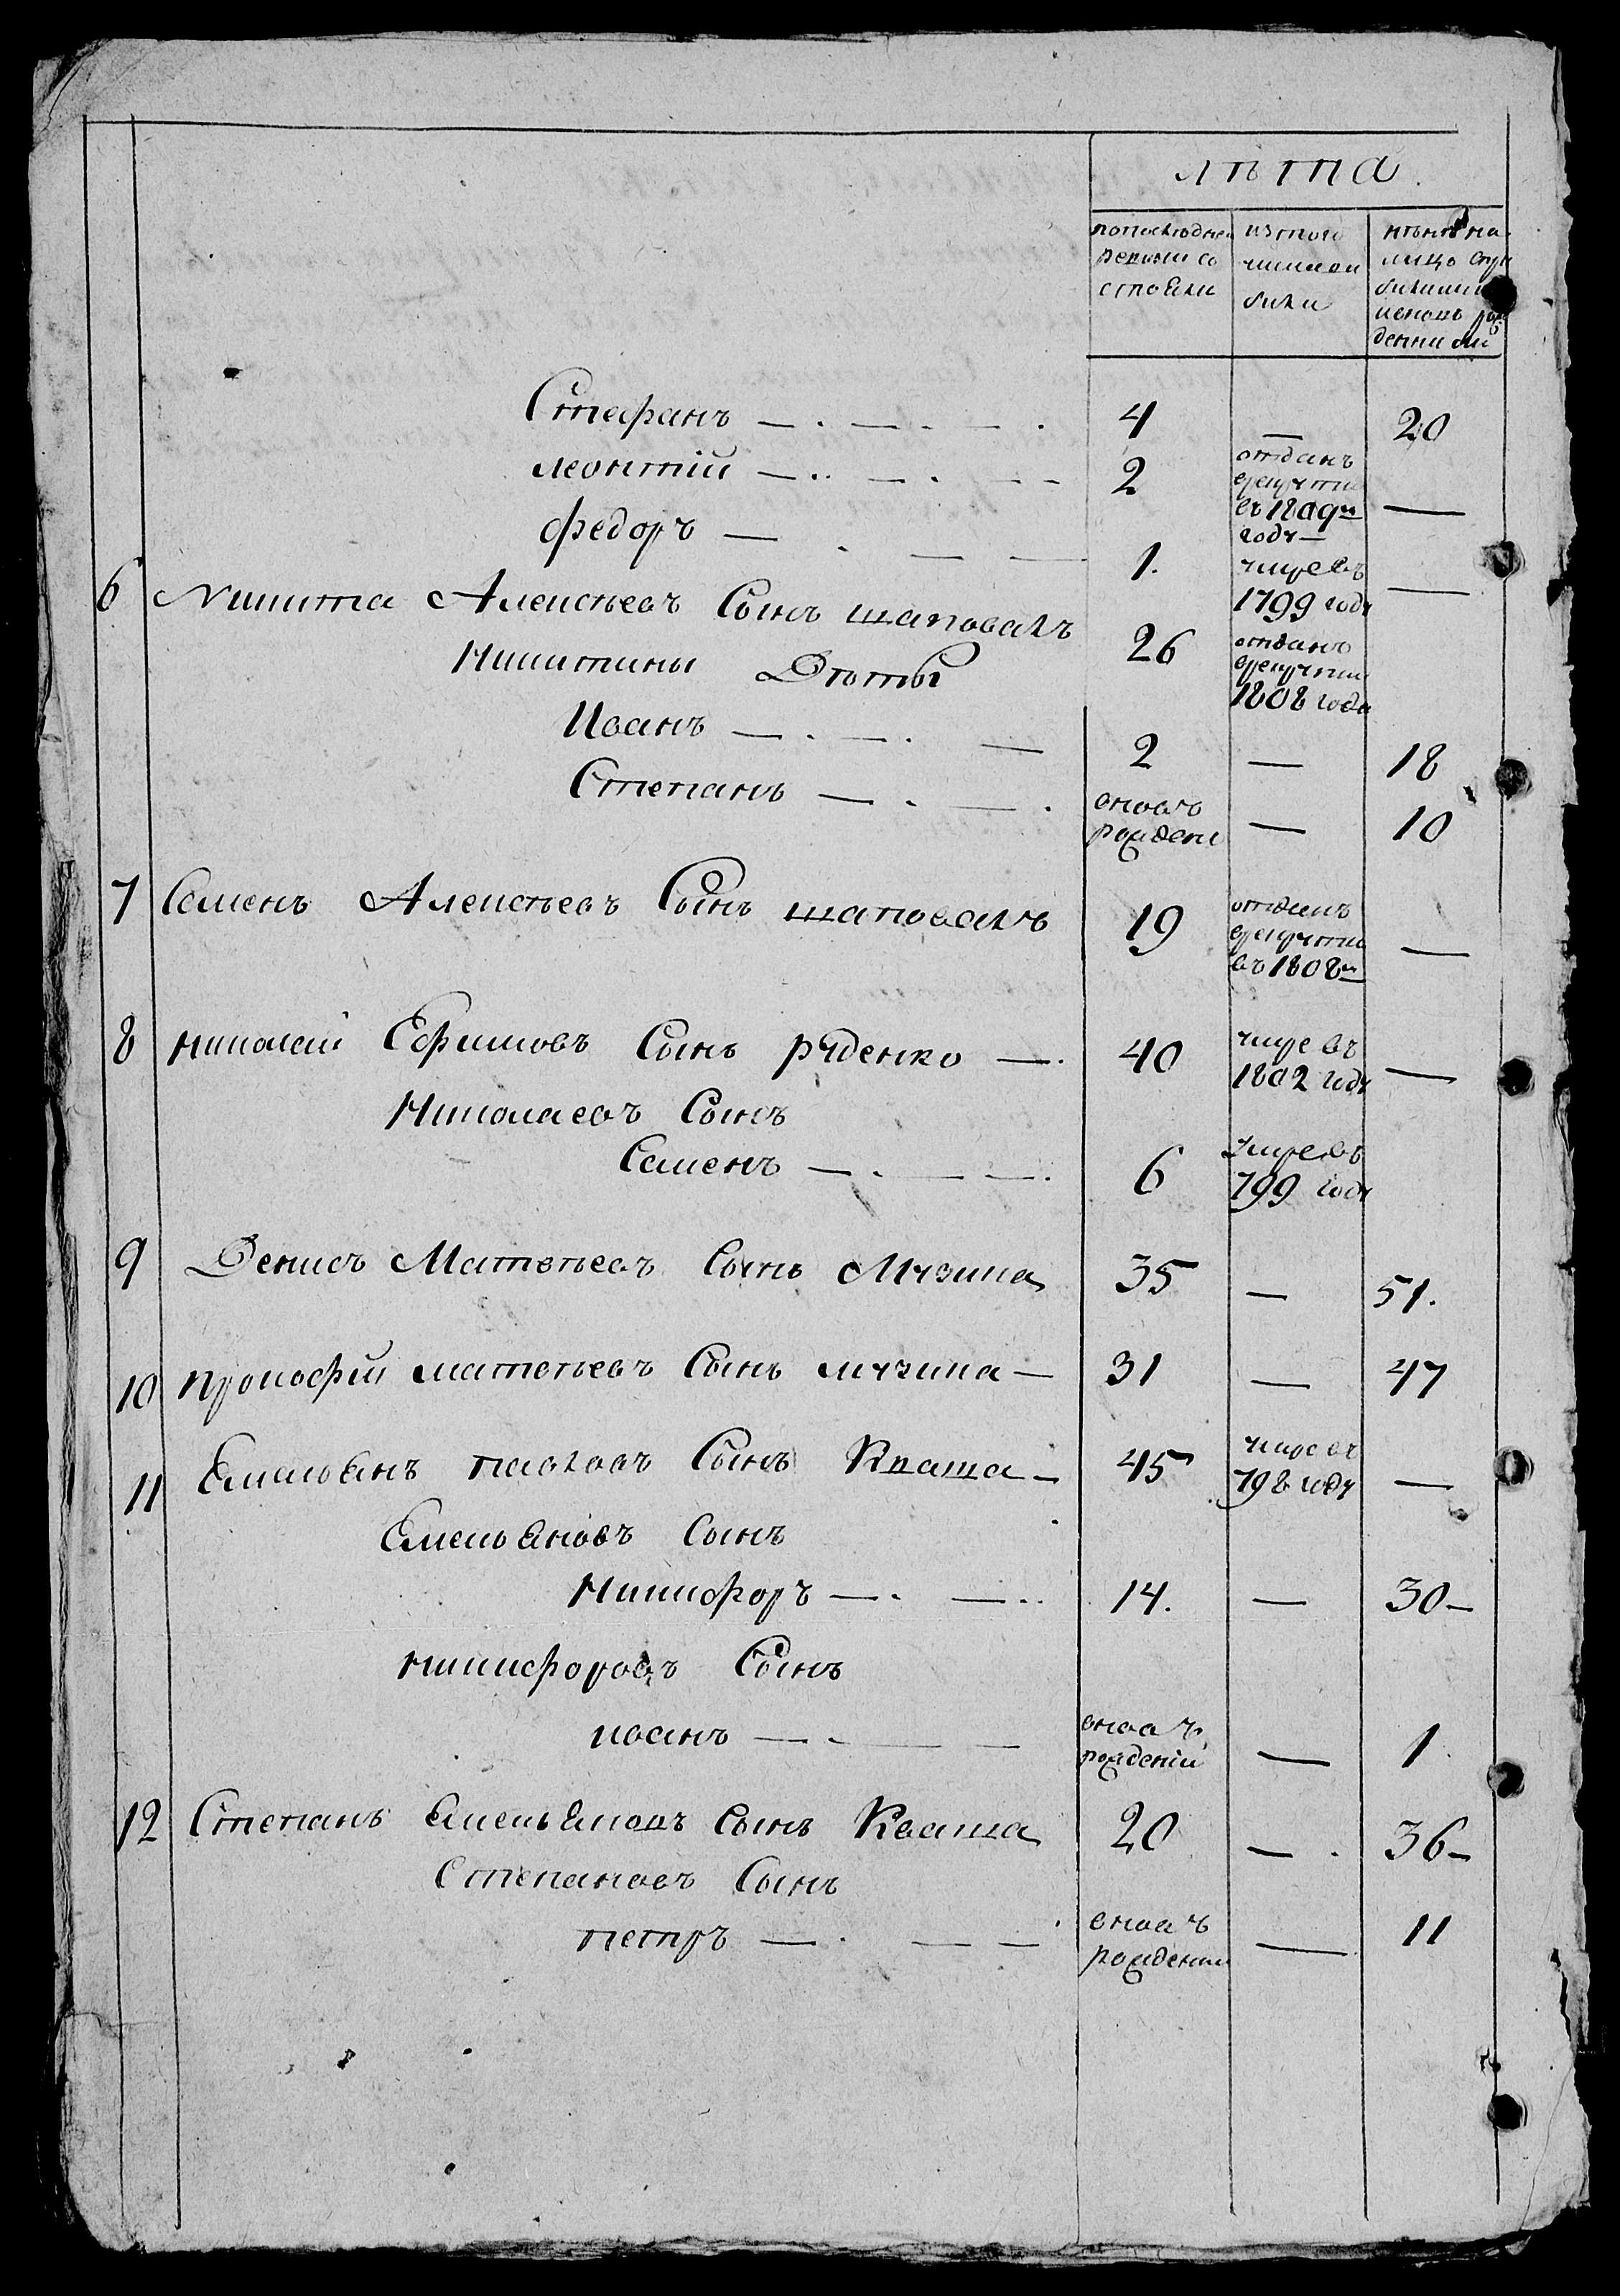 лѣта.
попоследней ревизии состояли
изтого числа выбили
нынѣ налицо съприбилими ивновь рожденними
Стефанъ — . — . — . 4 — 20
леонтій — .. — . — – 2 отданъ врекруты въ 1809м году — —
федоръ — . — — 1. умре въ 1799 году —
6 Никита Алексѣевъ Сынъ шаповалъ 26 отданъ врекруты 1808 года
Никитины Дѣти
Иванъ — . — . — 2 — 18
Степанъ — . — . вновъ рожденъ — 10
7 Семенъ Алексѣевъ Сынъ шаповалъ 19 отданъ врекруты въ 1808м —
8 николай Ефимовъ Сынъ руденко — . 40 умре въ 1802 году —
Николаевъ Сынъ
Семенъ — . — — . 6 умре въ 799 году
9 Денисъ Матвѣевъ Сынъ Музика 35 — 51.
10 прокофій матвѣевъ Сынъ музика — 31 — 47
11 Емельянъ павловъ Сынъ Кваша — 45 умре въ 798 году —
Емельяновъ Сынъ
Никифоръ — . — .. 14. — 30 –
никифоровъ Сынъ
иванъ — . — — вновъ рожденій — 1
12 Степанъ Емельяновъ Сынъ Кваша 20 — . 36 –
Степановъ Сынъ
петръ — . — — вновъ рожденій — 11